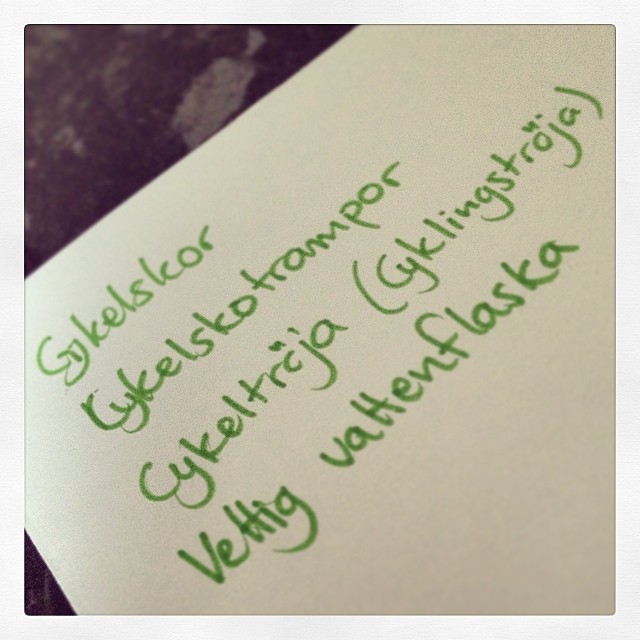 Cykelskor
Cykelskotrampor
Cykeltröja (Cyklingströja)
Vettig vattenflaska